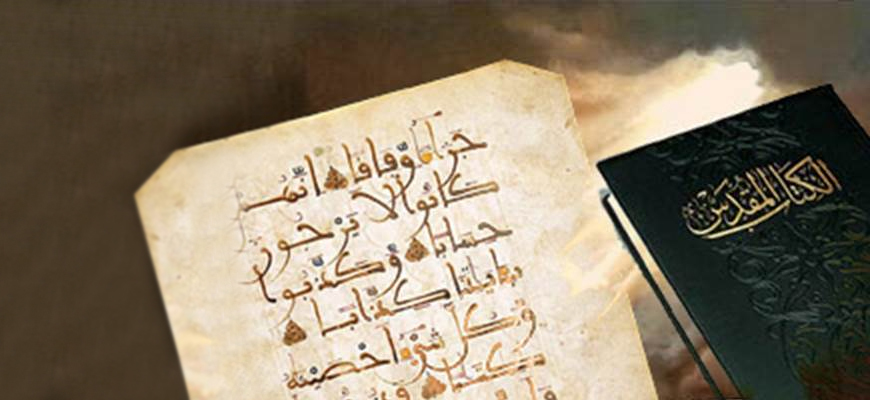 جزاء وفاقا انهم
كانوا لا يرجون
حسابا وكذبوا
بايتنا كذابا
وكل شيء احصينه
كتبا
الكتاب المقدس